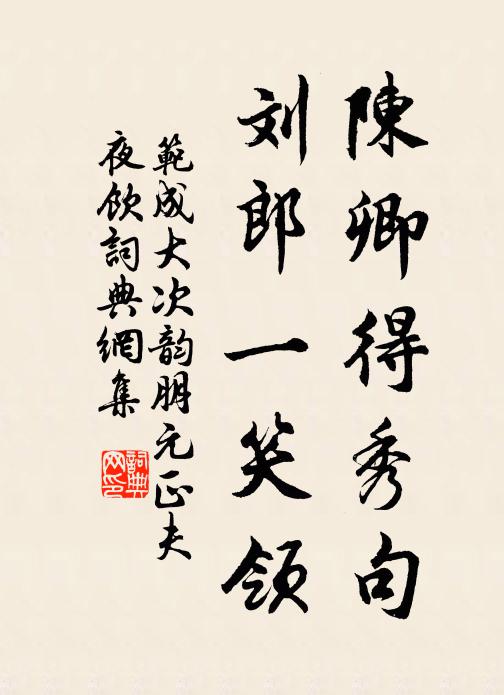 陳卿得秀句
刘郎一笑领
範成大次韵朋元正夫
夜飲詞典網集
詞典
网印